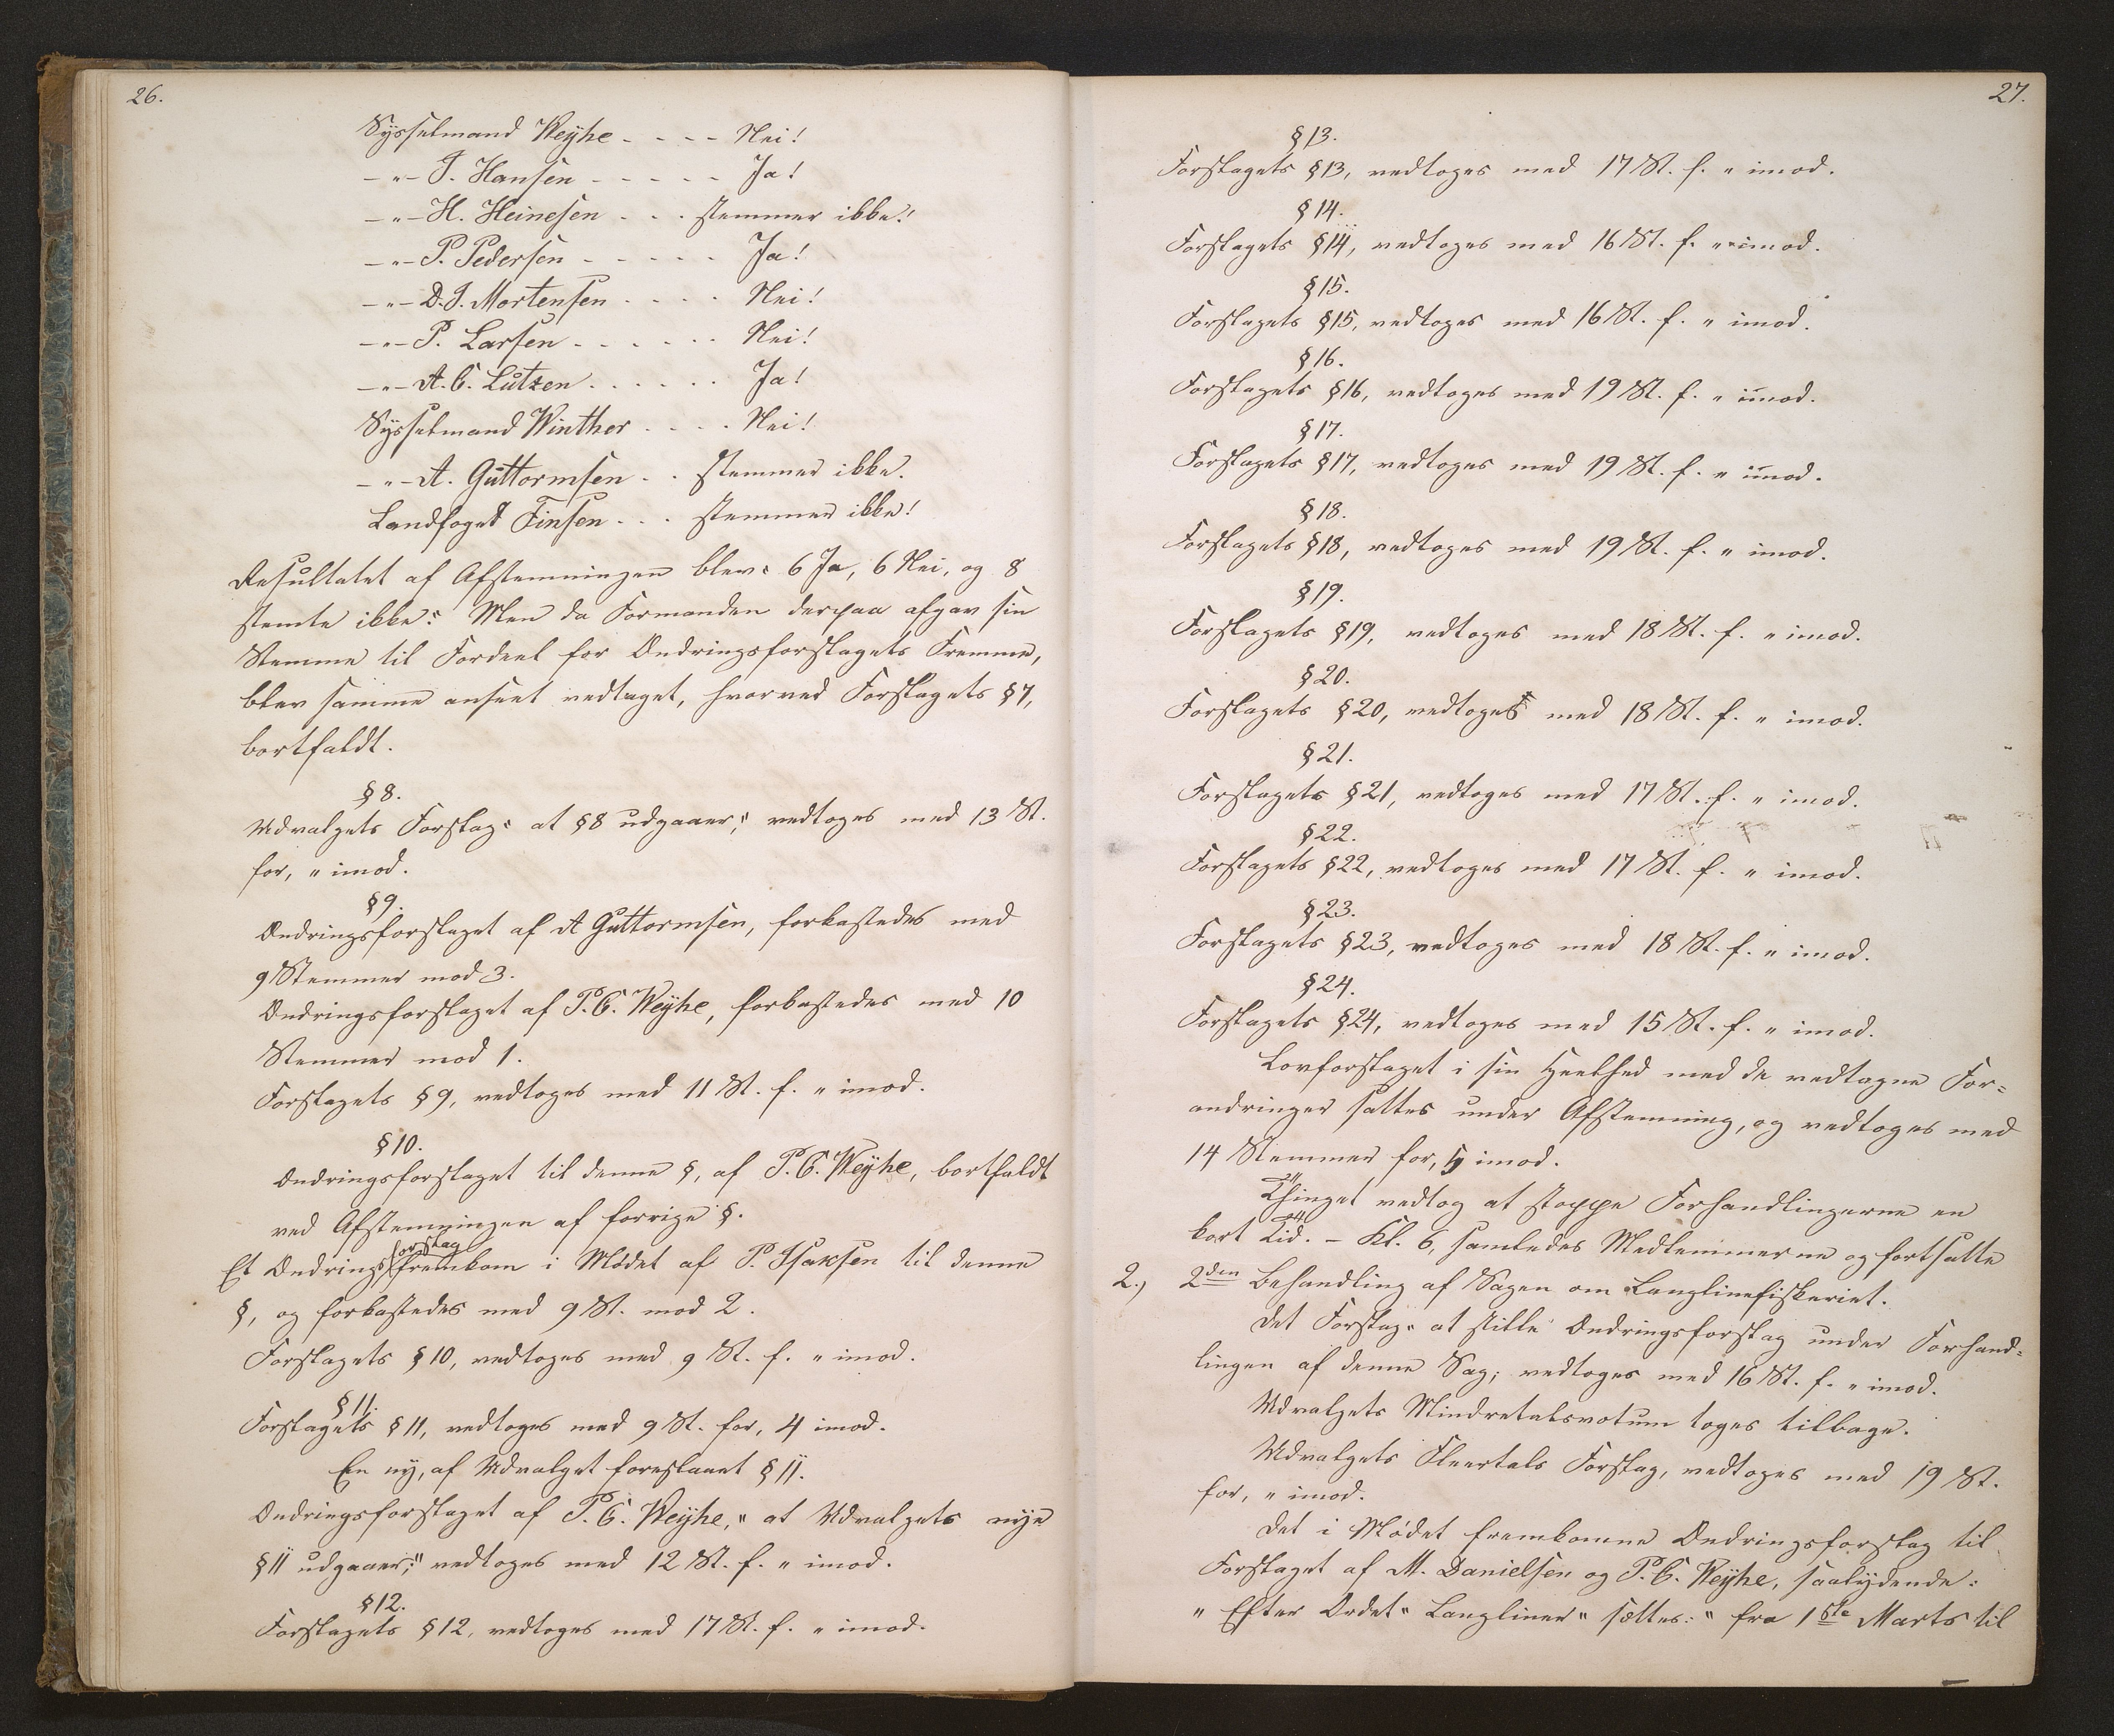 26.
Sysselmand Weyhe - - - - Nei!
-"- J. Hansen - - - - - Ja!
-"- H. Heinesen - - - stemmer ikke!
-"- P. Pedersen - - - - - Ja!
-"- D. J. Mortensen - - - - Nei!
-"- P. Larsen - - - - - - Nei!
-"- A. C. Lützen . . . . . . Ja!
Sysselmand Winther . . . . Nei!
-"- A. Guttormsen - . stemmer ikke.
Landfoged Finsen - - . stemmer ikke!
Resultatet af Afstemningen blev: 6 Ja, 6 Nei, og 8
stemte ikke: Men da Formanden derpaa afgav sin
Stemme til Fordeel for Ændringsforslagets Fremme,
blev samme anseet vedtaget, hvorved Forslagets § 7,
bortfaldt.
§ 8.
Udvalgets Forslag " at § 8 udgaaer;" vedtoges med 13 St.
for, " imod.
§ 9.
Ændringsforslaget af A Guttormsen, forkastedes med
9 Stemmer mod 3.
Ændringsforslaget af P. C. Weyhe, forkastedes med 10
Stemmer mod 1.
Forslagets § 9, vedtoges med 11 St. f. " imod.
§ 10.
Ændringsforslaget til denne §, af P. C. Weyhe, bortfaldt
ved Afstemningen af forrige §.
Et Ændringsforslag fremkom i Mødet af P. Isaksen til denne
§, og forkastedes med 9 St. mod 2.
Forslagets § 10, vedtoges med 9 St. f. " imod.
§ 11.
Forslagets § 11, vedtoges med 9 St. for, 4 imod.
En ny, af Udvalget foreslaaet § 11.
Ændringsforslaget af P. C. Weyhe, " at Udvalgets nye
§ 11 udgaaer;" vedtoges med 12 St. f. " imod.
§ 12.
Forslagets § 12, vedtoges med 17 St. f. " imod.
27.
§ 13.
Forslagets § 13, vedtoges med 17 St. f. " imod.
§ 14.
Forslagets § 14, vedtoges med 16 St. f. " imod.
§ 15.
Forslagets § 15, vedtoges med 16 St. f. " imod.
§ 16.
Forslagets § 16, vedtoges med 19 St. f. " imod.
§ 17.
Forslagets § 17, vedtoges med 19 St. f. " imod.
§ 18.
Forslagets § 18, vedtoges med 19 St. f. " imod.
§ 19.
Forslagets § 19, vedtoges med 18 St. f. " imod.
§ 20.
Forslagets § 20, vedtoges med 18 St. f. " imod.
§ 21.
Forslagets § 21, vedtoges med 17 St. f. " imod.
§ 22.
Forslagets § 22, vedtoges med 17 St. f. " imod.
§ 23.
Forslagets § 23, vedtoges med 18 St. f. " imod.
§ 24.
Forslagets § 24, vedtoges med 15 St. f. " imod.
Lovforslaget i sin Heelhed med de vedtagne For=
andringer sattes under Afstemning, og vedtoges med
14 Stemmer for, 5 imod.
Thinget vedtog at stoppe Forhandlingerne en
kort Tid. - Kl. 6, samledes Medlemmerne og fortsatte
2.) 2den Behandling af Sagen om Langlinefiskeriet.
Det Forslag " at stille Ændringsforslag under Forhand=
lingen af denne Sag; vedtoges med 16 St. f. " imod.
Udvalgets Mindretalsvotum toges tilbage.
Udvalgets Fleertals Forslag, vedtoges med 19 St.
for, " imod.
Det i Mødet fremkomne Ændringsforslag til
Forslaget af M. Danielsen og P. C. Weyhe, saalydende:
" Efter Ordet " Langliner " sættes: " fra 1ste Marts til